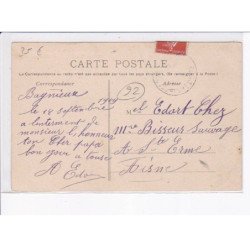 25 €
CARTE POSTALE
La Correspondance au recto n'est pas acceptée par tous les pays étrangers, (Se renseigner à la Poste)
Correspondance
Adresse
92
Bagneux
le 18 septembre
a lenterment de
monsieur l honneur
ton Cher papa
bon jour a tousse
Mel Edart Chez
Mme Bisseux Sauvage
A Ste Erme
Aisne